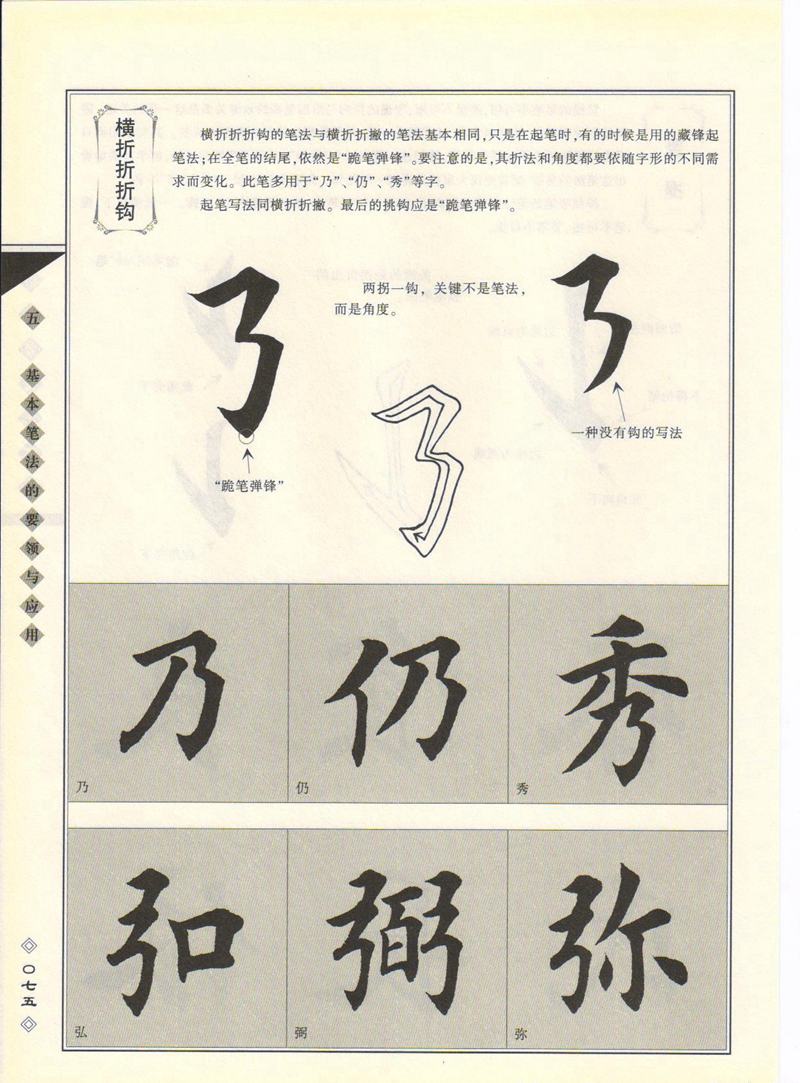 横折折折钩
横折折折钩的笔法与横折折撇的笔法基本相同,只是在起笔时,有的时候是用的藏锋起
笔法;在全笔的结尾,依然是“跪笔弹锋”。要注意的是,其折法和角度都要依随字形的不同需
求而变化。此笔多用于“乃”、“仍”、“秀”等字。
起笔写法同横折折撇。最后的挑钩应是“跪笔弹锋”。
两拐一钩，关键不是笔法，
而是角度。
“跪笔弹锋”
一种没有钩的写法
五 基本笔法的要领与应用
乃 仍 秀
乃 仍 秀
弘 弼 弥
弘 弼 弥
〇七五